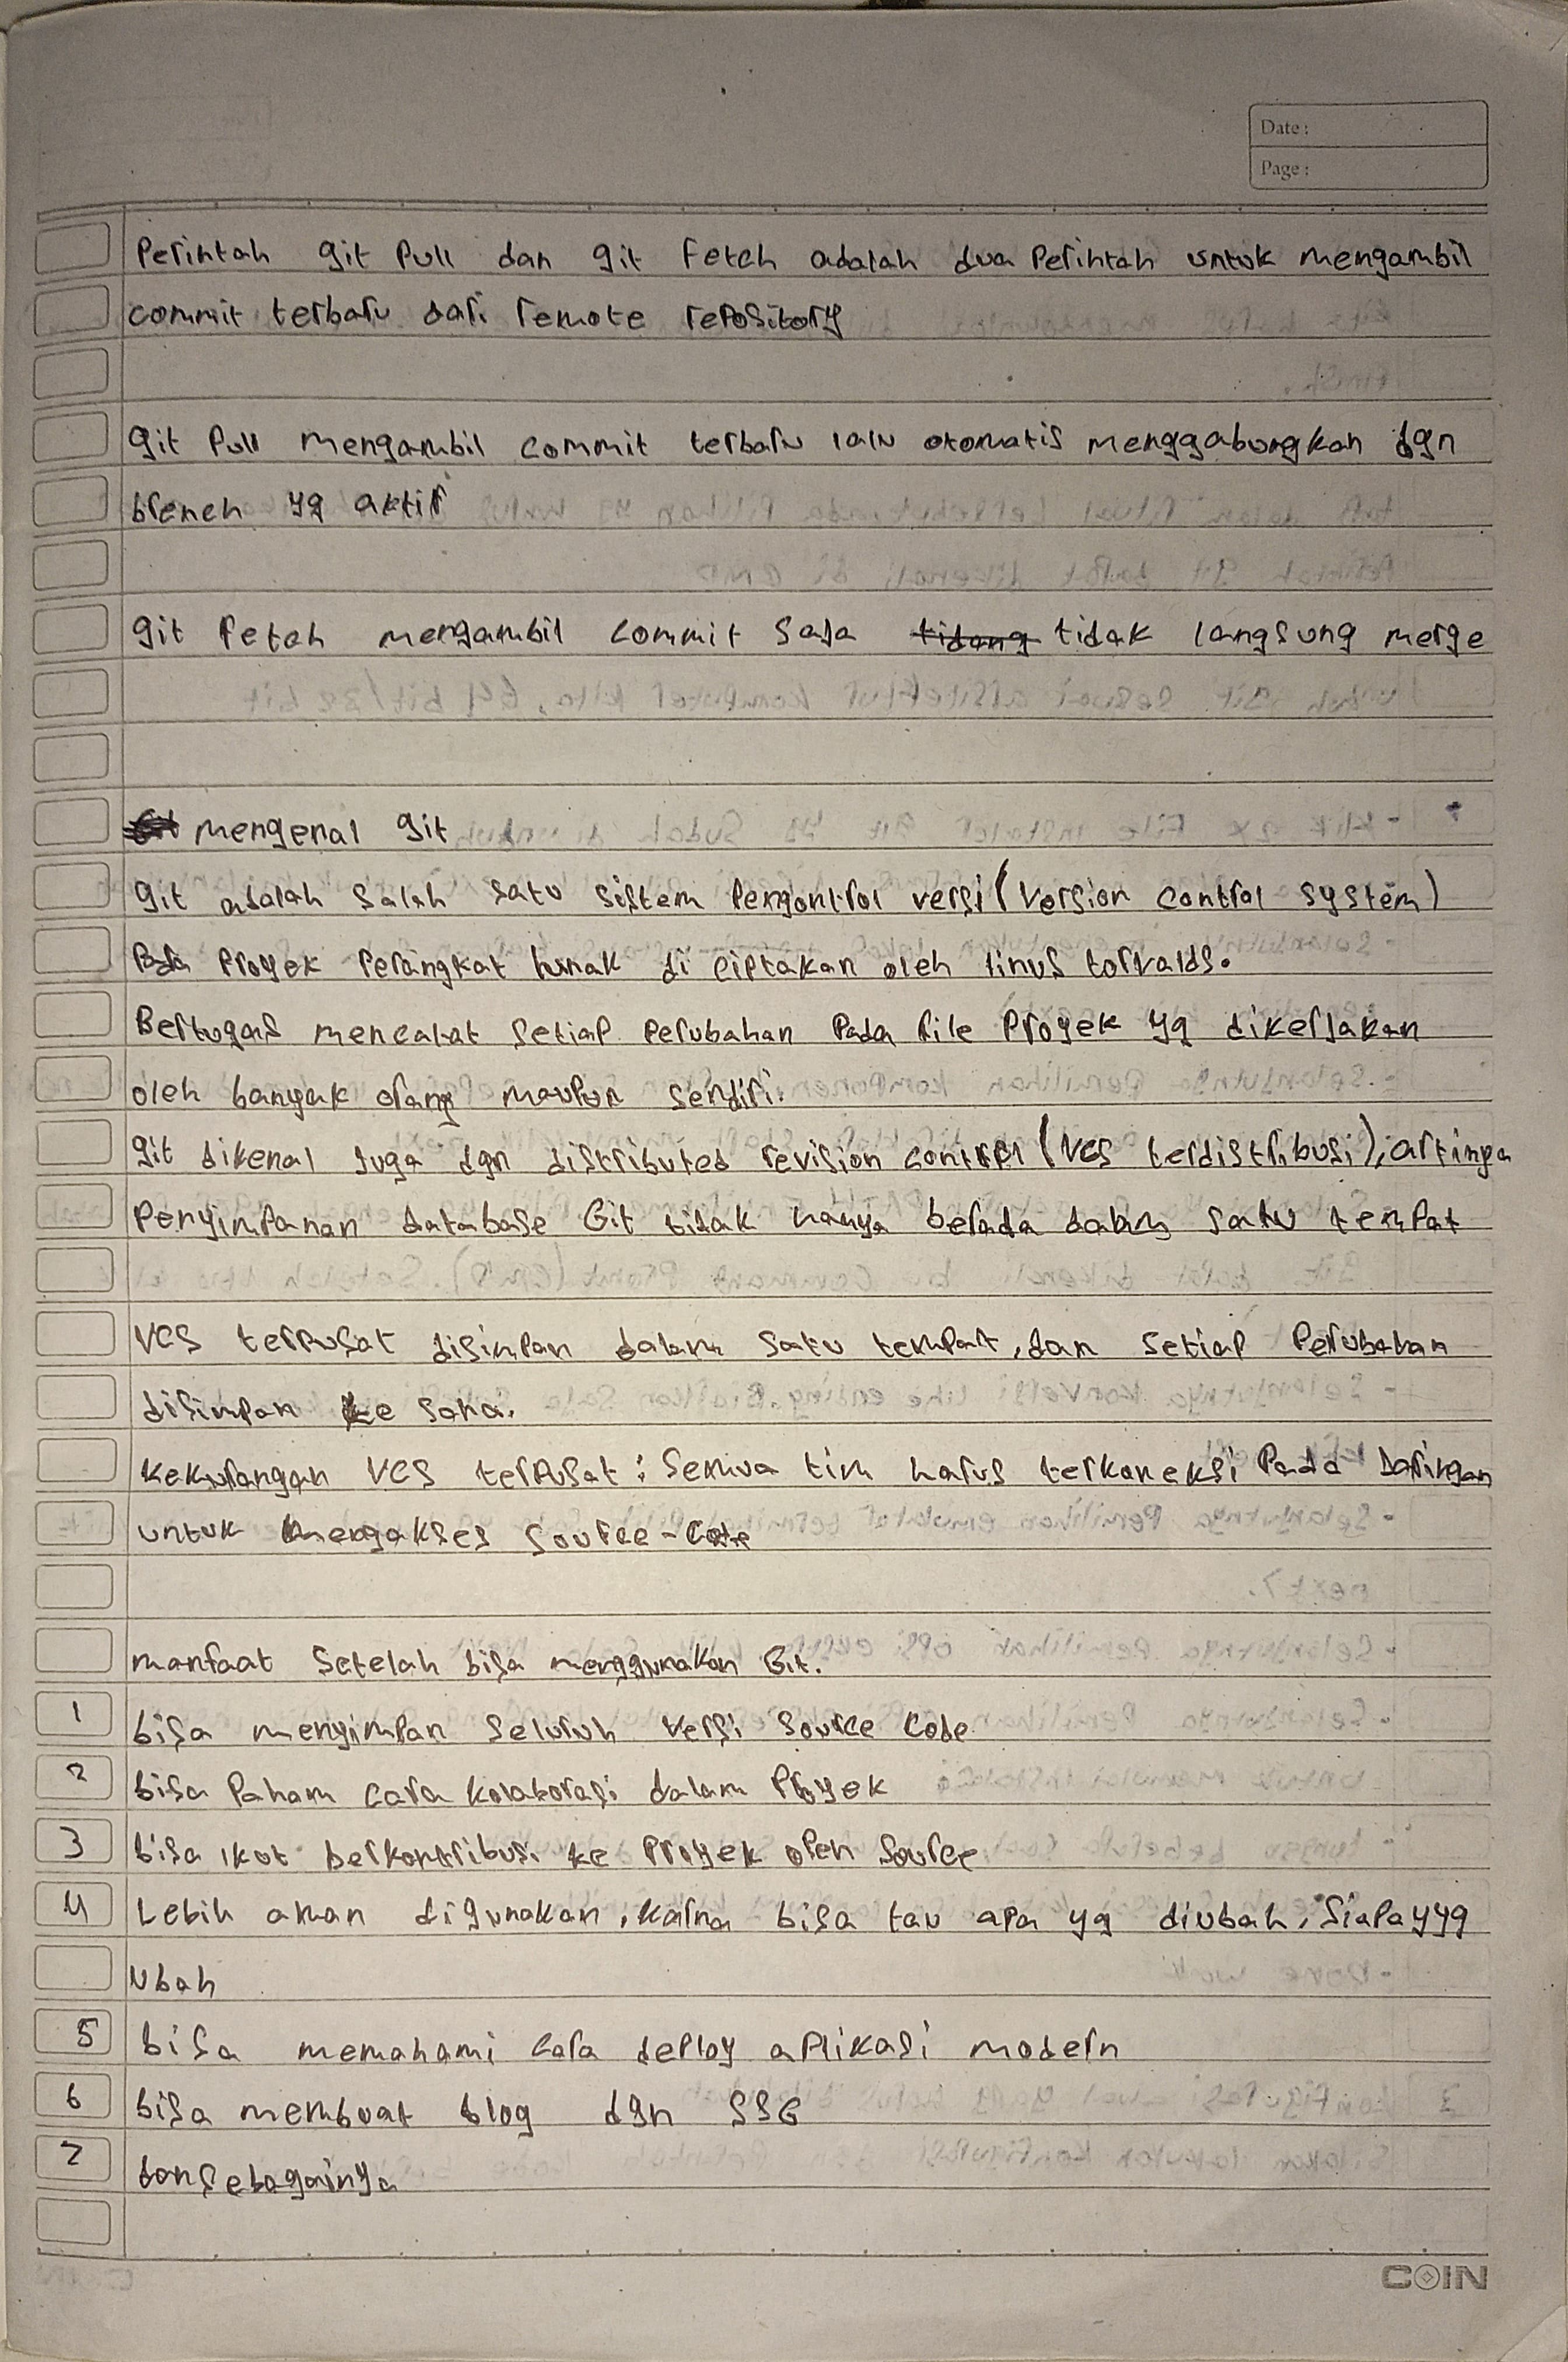 Date :
Page :
Perintah git Pull dan git Fetch adalah dua Perintah untuk mengambil
commit terbaru dari remote repository
git Pull mengambil commit terbaru lalu otomatis menggabungkan dgn
brench yg aktif
git Fetch mengambil commit saja tidak langsung merge
mengenal git
git adalah salah satu sistem Pengontrol versi (Version control system)
Pada Proyek Perangkat lunak di ciptakan oleh linus torvalds.
Bertugas mencatat setiap Perubahan Pada file Proyek yg dikerjakan
oleh banyak orang maupun sendiri.
git dikenal juga dgn distributed revision control (VCS terdistribusi), artinya
Penyimpanan database Git tidak hanya berada dalam satu tempat
VCS terpusat disimpan dalam satu tempat, dan setiap Perubahan
disimpan ke sana.
Kekurangan VCS terpusat : semua tim harus terkoneksi Pada Jaringan
untuk mengakses source-Code
manfaat setelah bisa menggunakan Git.
1 bisa menyimpan seluruh versi source Code
2 bisa Paham cara kolaborasi dalam Proyek
3 bisa ikut berkontribusi ke Proyek open source
4 Lebih aman digunakan, karna bisa tau apa yg diubah, siapa yyg
ubah
5 bisa memahami cara deploy aplikasi modern
6 bisa membuat blog dgn SSG
7 dan sebagainya
COIN